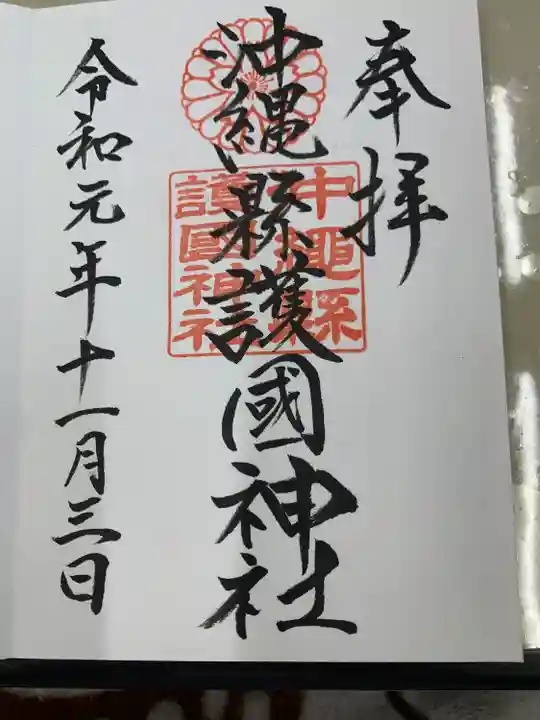 奉拝
沖縄縣護國神社
沖縄縣
護國神社
令和元年十一月三日